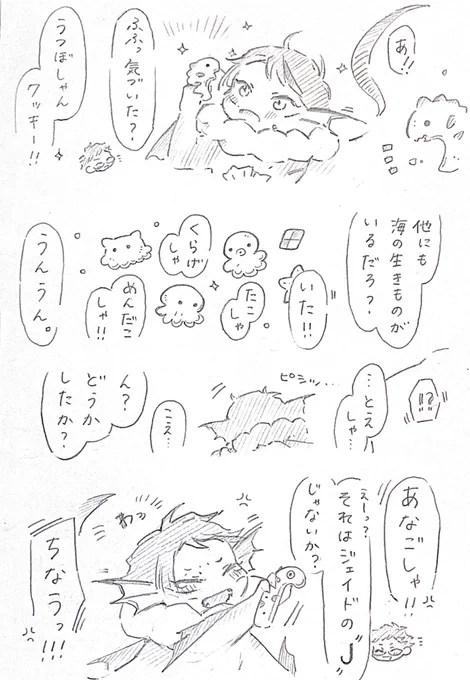 あ!!
ふふっ気づいた?
うつぼしゃん
クッキー!!
他にも
海の生きものが
いるだろ?
いた!!
たこ
しゃ
くらげ
しゃ
めんだこ
しゃ!!
うんうん。
!?
…とえ
しゃ…
ピシッ…
こえ…
ん?
どうか
したか?
あなごしゃ!!
えーっ?
それはジェイドのJ
じゃないか?
わっ
ちなうっ!!!